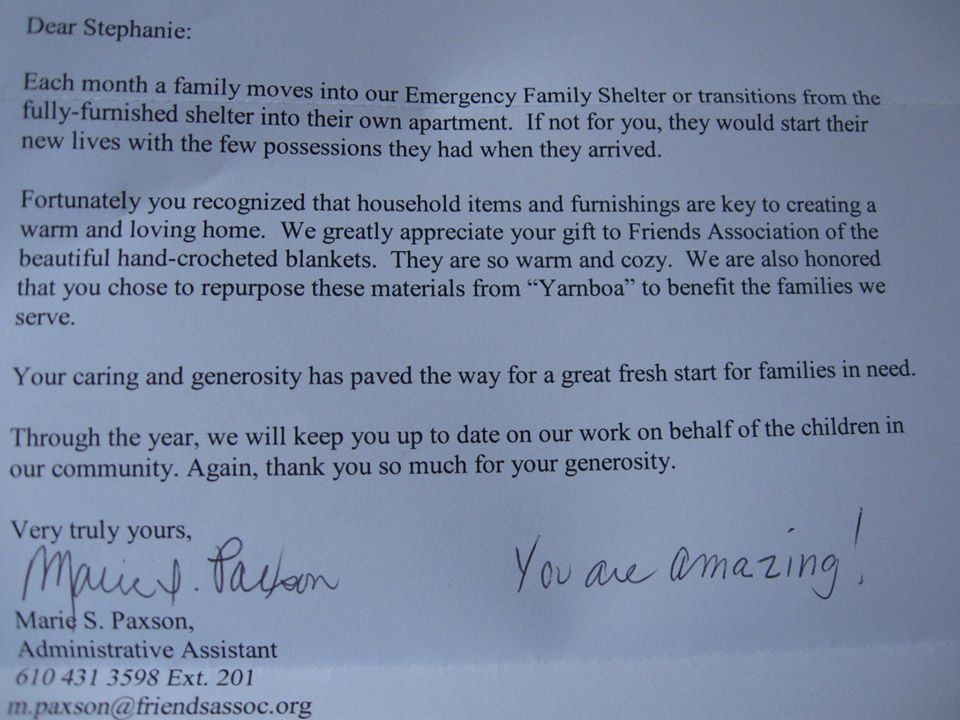 Dear Stephanie:
Each month a family moves into our Emergency Family Shelter or transitions from the
fully-furnished shelter into their own apartment. If not for you, they would start their
new lives with the few possessions they had when they arrived.
Fortunately you recognized that household items and furnishings are key to creating a
warm and loving home. We greatly appreciate your gift to Friends Association of the
beautiful hand-crocheted blankets. They are so warm and cozy. We are also honored
that you chose to repurpose these materials from “Yarnboa” to benefit the families we
serve.
Your caring and generosity has paved the way for a great fresh start for families in need.
Through the year, we will keep you up to date on our work on behalf of the children in
our community. Again, thank you so much for your generosity.
Very truly yours,
Marie S. Paxson
You are amazing!
Marie S. Paxson,
Administrative Assistant
610 431 3598 Ext. 201
m.paxson@friendsassoc.org